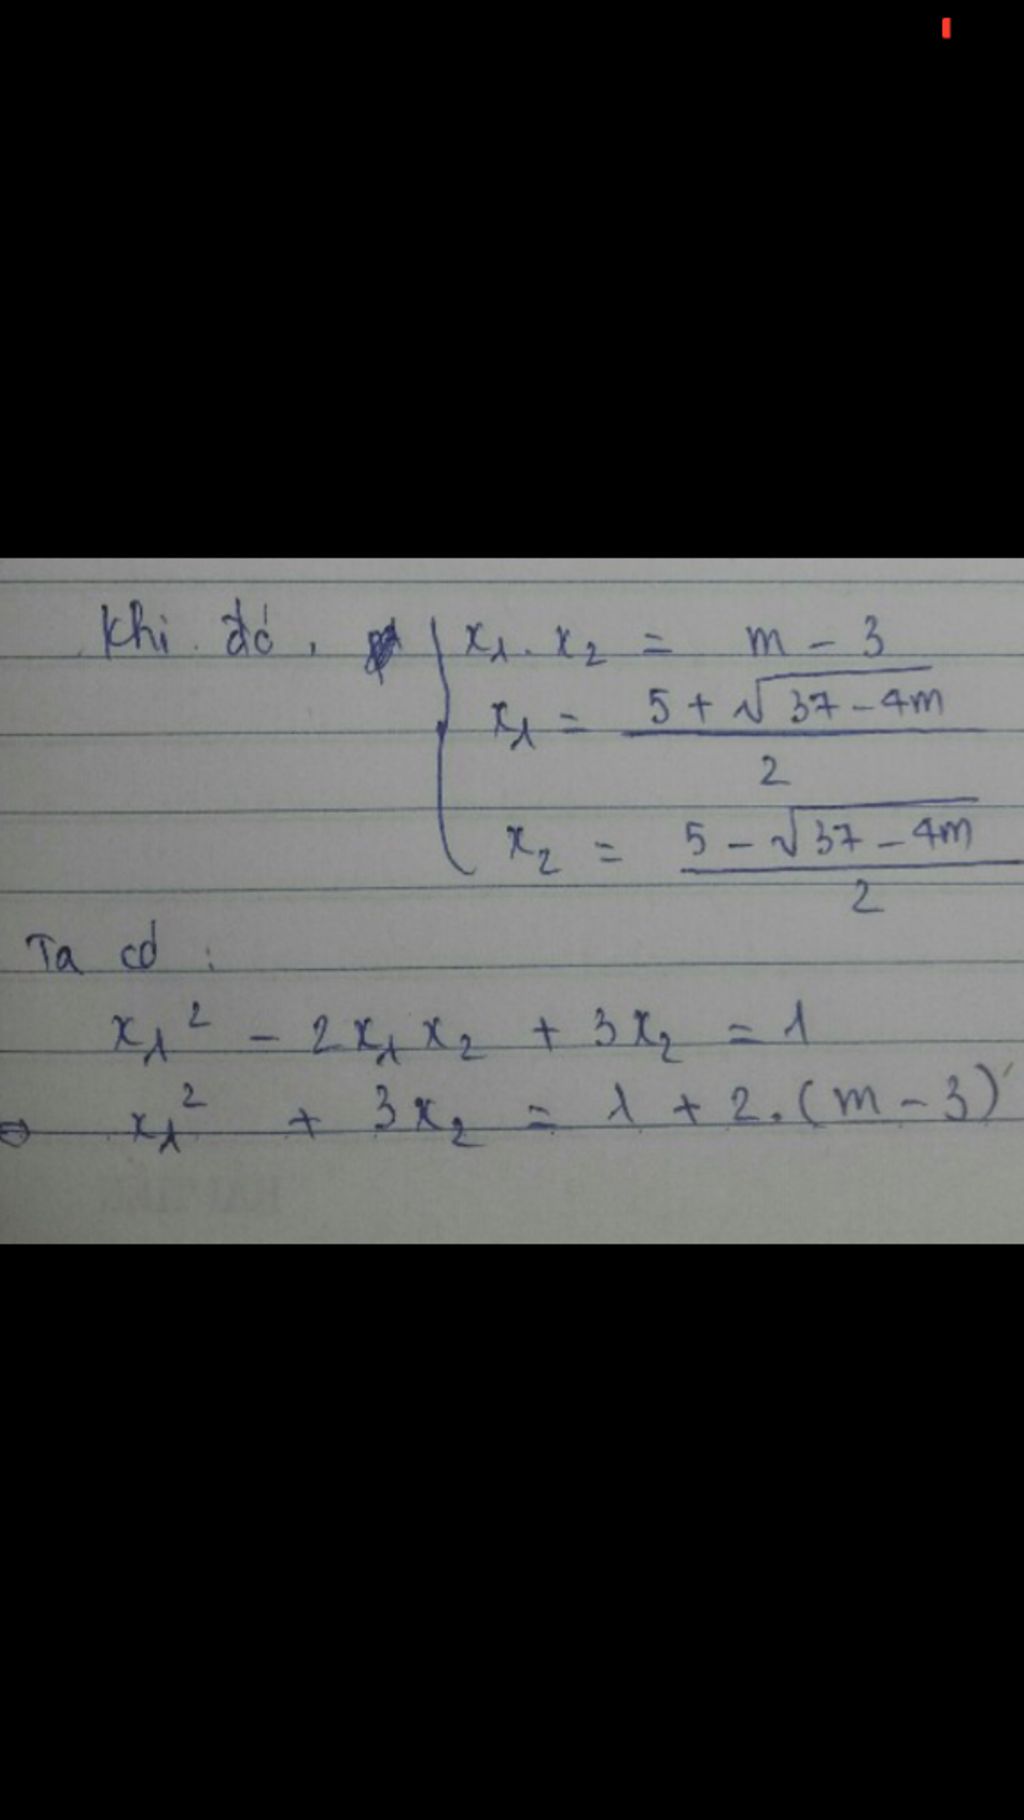 Khi đó, x₁.x₂ = m - 3
x₁ = (5 + √(37 - 4m))/2
x₂ = (5 - √(37 - 4m))/2
Ta có :
x₁² - 2x₁x₂ + 3x₂ = 1
⇔ x₁² + 3x₂ = 1 + 2.(m - 3)